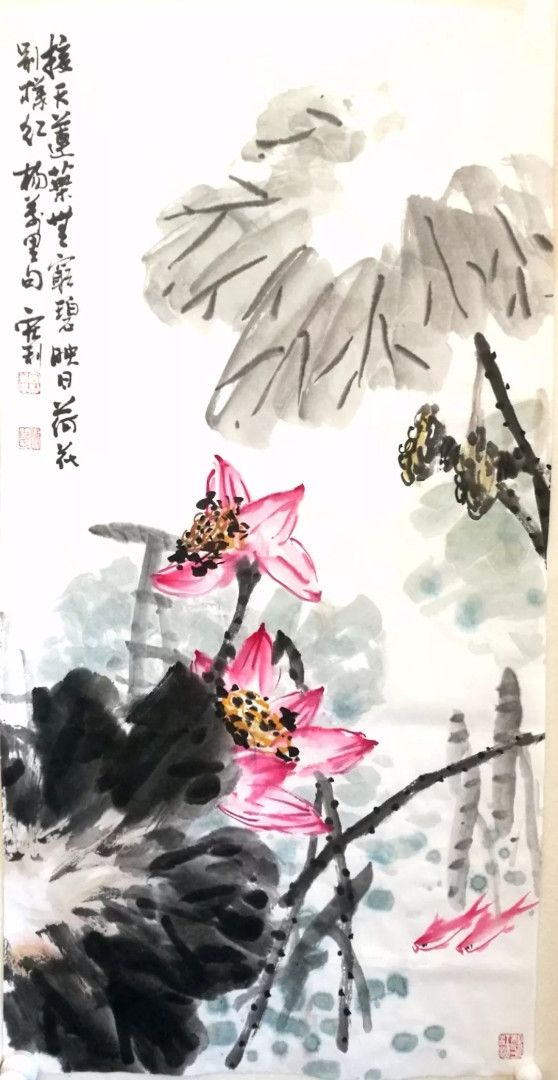 接天蓮葉無窮碧映日荷花
别樣红 杨萬里句